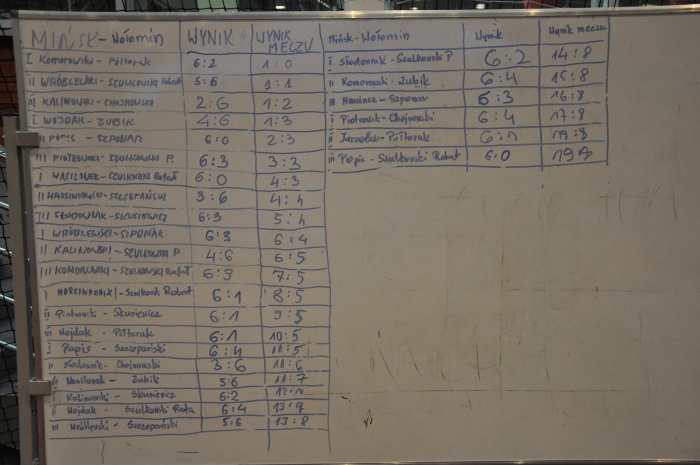 MIŃSK - Wołomin WYNIK WYNIK MECZU
I Komorowski - Półturak 6:2 1:0
II WRÓBLEWSKI - SZULKOWSKI Robert 5:6 1:1
III KALINOWSKI - CHOJNOWSKI 2:6 1:2
I WOJDAK - ZUBIK 4:6 1:3
II POPIS - SZPONAR 6:0 2:3
III PIOTROWSKI - SZULKOWSKI P. 6:3 3:3
I WASILONEK - SZULKOWSKI Rafał 6:0 4:3
II - SZCZEPAŃSKI 3:6 4:4
III ŚLODOWNIK - SKUSIEWICZ 6:3 5:4
I WRÓBLEWSKI - SZPONAR 6:3 6:4
II KALINOWSKI - SZULKOWSKI P 4:6 6:5
III KOMOROWSKI - SZULKOWSKI Rafał 6:3 7:5
I - Szulkowski Robert 6:1 8:5
II Piotrowski - Skusiewicz 6:1 9:5
III Wojdak - Półturak 6:1 10:5
I Popis - Szczepański 6:4 11:5
II Ślodownik - Chojnowski 3:6 11:6
III - Zubik 5:6 11:7
I Kalinowski - Skusiewicz 6:2
II Wojdak - Szulkowski Rafa 6:4 13:7
III - Szczepański 5:6 13:8
Mińsk - Wołomin Wynik Wynik meczu
I Ślodownik - Szulkowski P 6:2 14:8
II Komorowski - Zubik 6:4 15:8
III - Szponar 6:3 16:8
I Piotrowsk - Chojnowski 6:4 17:8
II - Półturak
III Popis - Szulkowski Robert 6:0